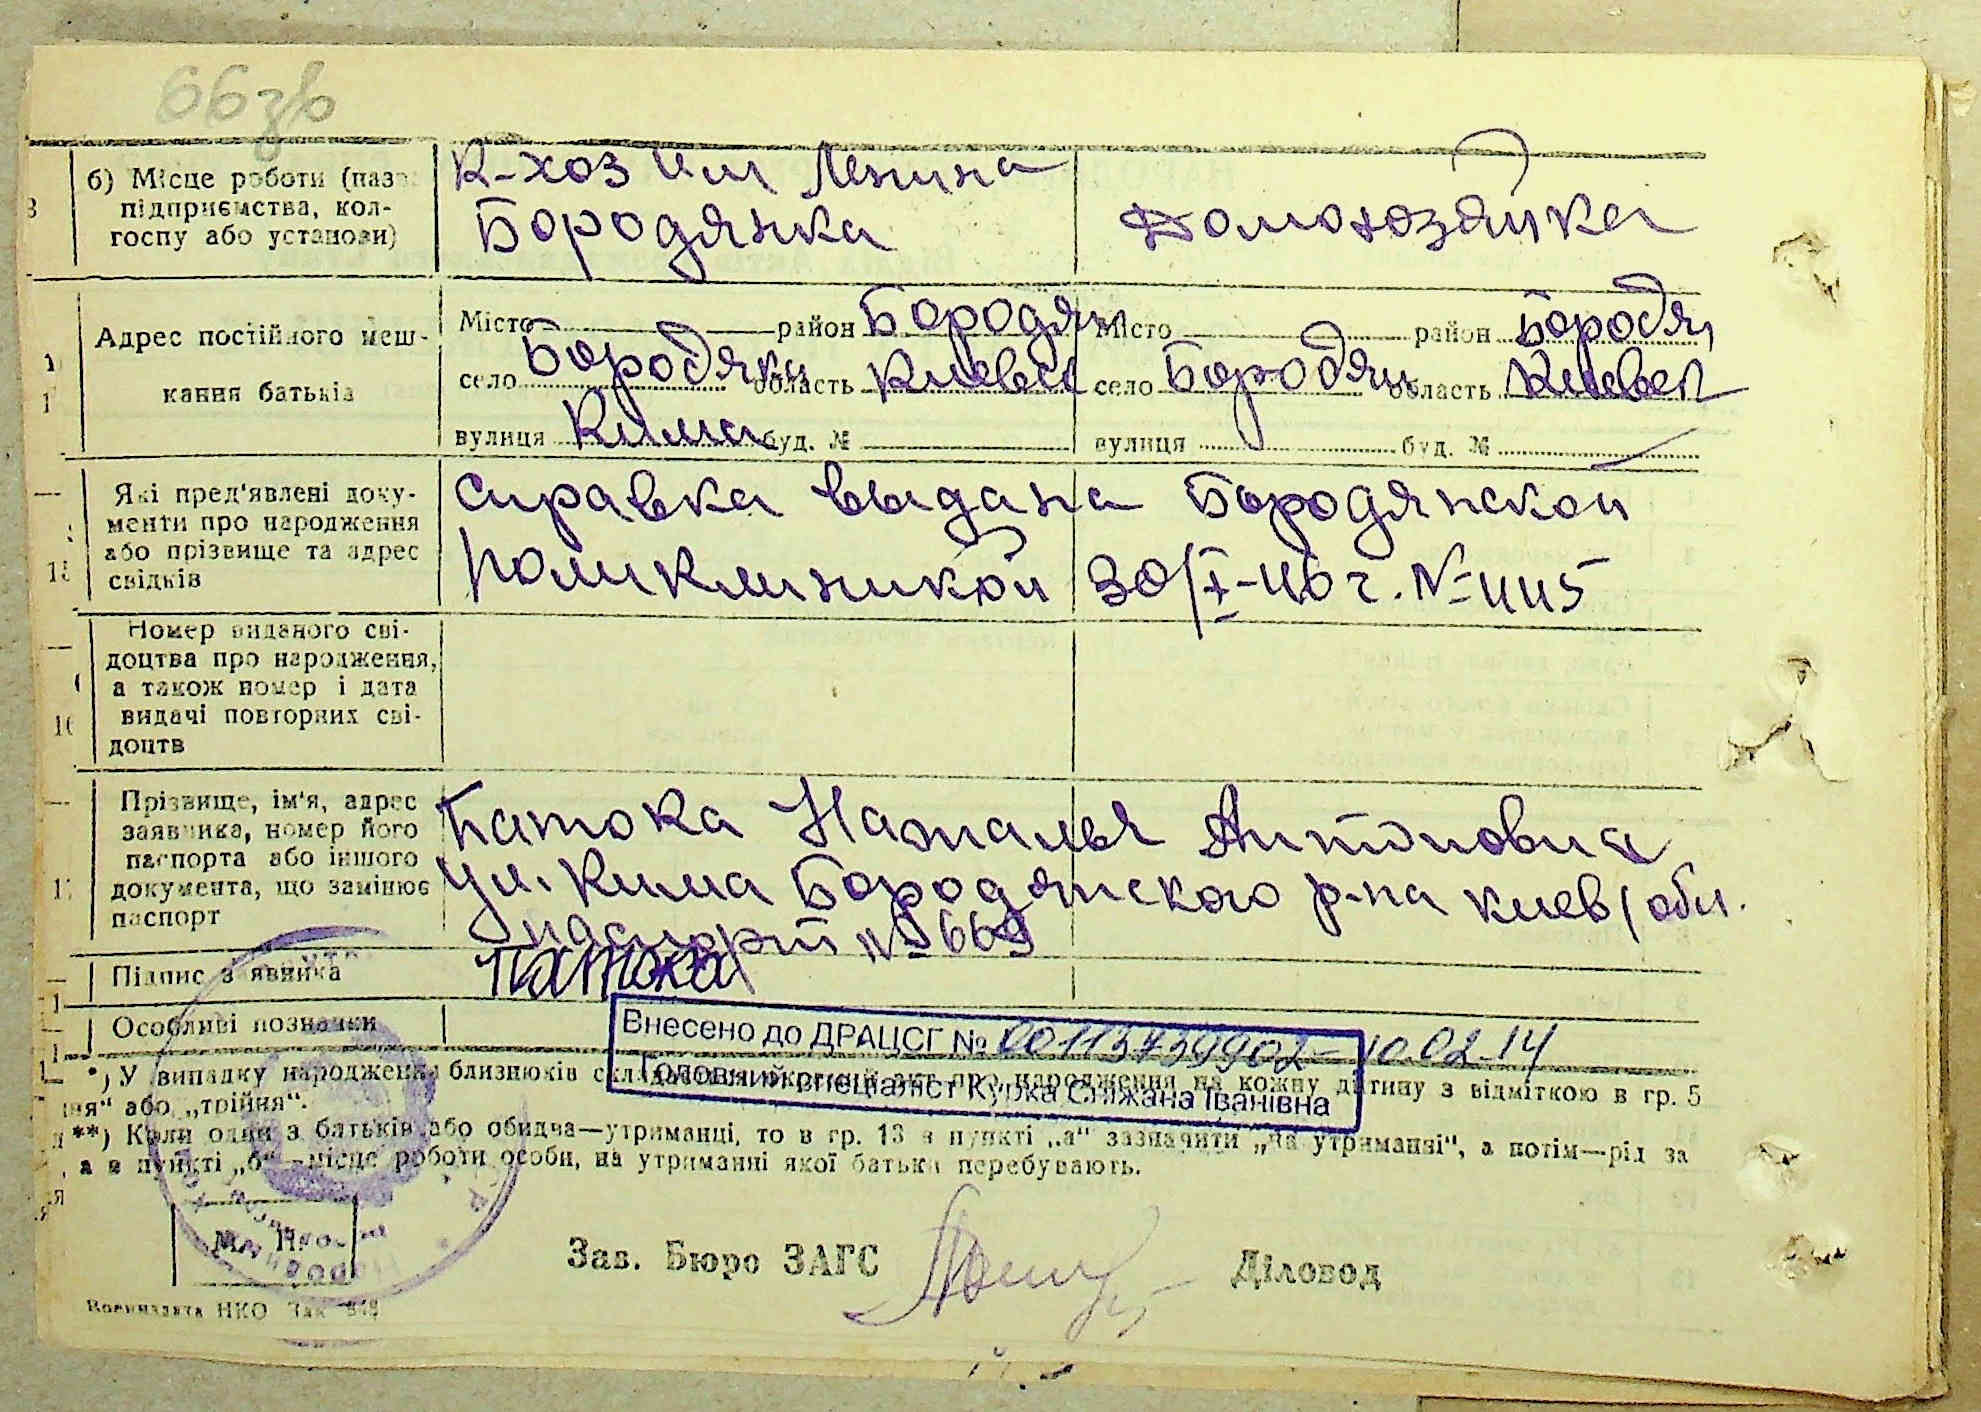 66зв
б) Місце роботи (назв
підприємства, кол-
госпу або установи)
К-хоз им Ленина
Бородянка
Домохозяйка
Адрес постійного меш-
кання батьків
Місто район Бородян
село Бородянка область Киевск
вулиця Кима буд. №
Місто район Бородян
село Бородян область Киевск
вулиця буд. №
Які пред'явлені доку-
менти про народження
або прізвище та адрес
свідків
Справка выдана Бородянской
поликлиникой 30/X-46 г. № 445
Номер виданого сві-
доцтва про народження,
а також номер і дата
видачі повторних сві-
доцтв
Прізвище, ім'я, адрес
заявника, номер його
паспорта або іншого
документа, що замінює
паспорт
Патока Наталья Антоновна
ул. Кима Бородянского р-на киев/обл.
паспорт № 669
Підпис заявника
Патока
Особливі позначки
Внесено до ДРАЦСГ № 00113739902 - 10.02.14
Головний спеціаліст Курка Сніжана Іванівна
*) У випадку народження близнюків складається окремий акт про народження на кожну дитину з відміткою в гр. 5
ня" або „трійня".
**) Коли один з батьків або обидва—утриманці, то в гр. 13 в пункті „а" зазначити „на утриманні", а потім—рід за
, а в пункті „б" —місце роботи особи, на утриманні якої батьки перебувають.
М. П.
Зав. Бюро ЗАГС
Діловод
Воениздата НКО Зак